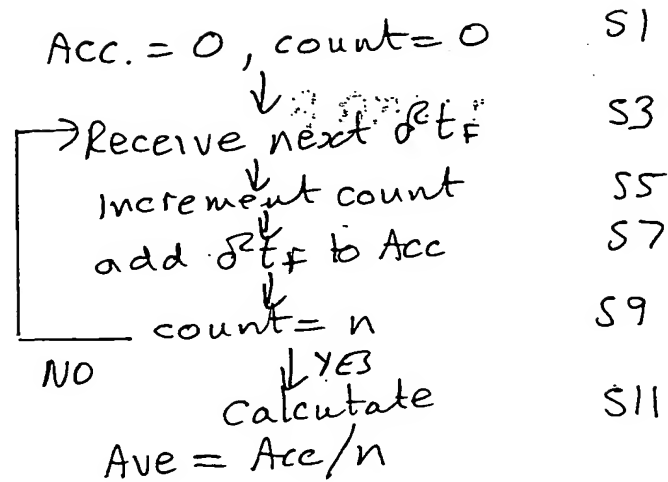 Acc. = 0, count = 0 S1
Receive next δ²t_F S3
Increment count S5
add δ²t_F to Acc S7
count = n S9
NO YES
Calcutate S11
Ave = Acc/n